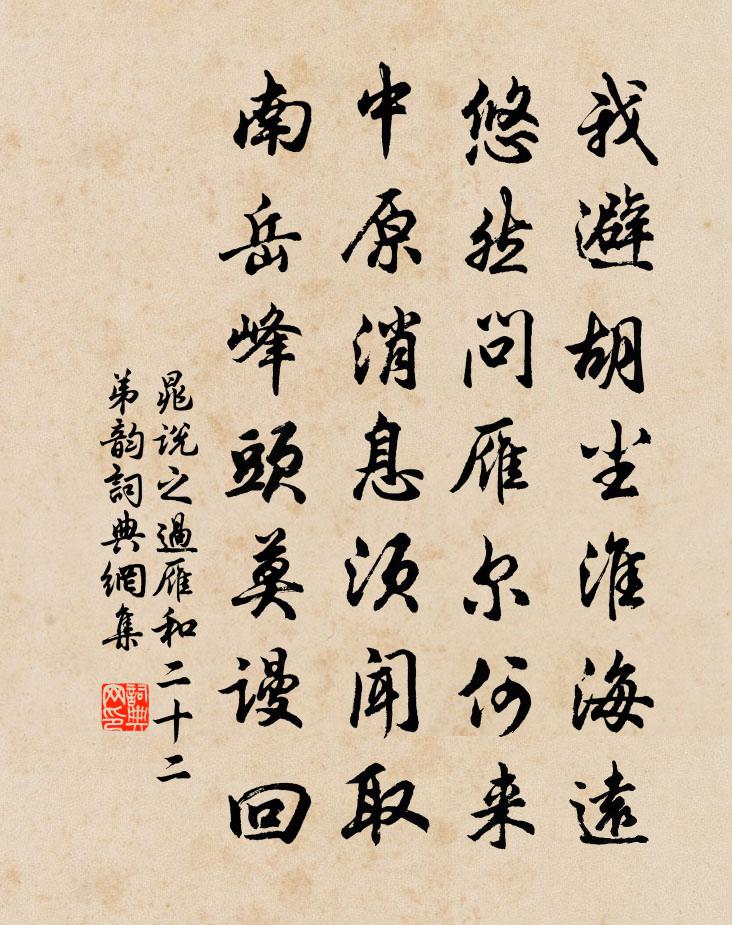 我避胡尘淮海遠
悠然问雁尔何来
中原消息须闻取
南岳峰頭莫谩回
晁说之過雁和二十二
弟韵詞典網集
詞典网印